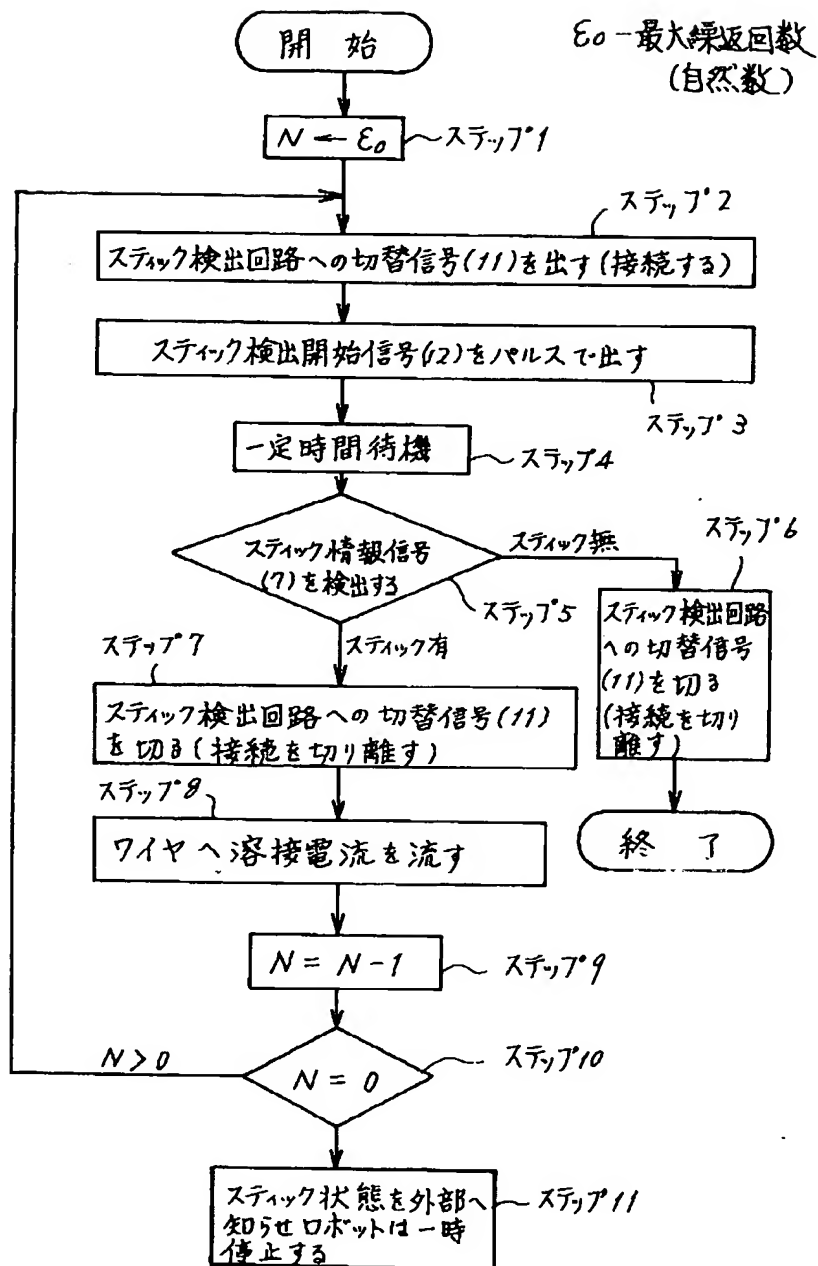 開始
ε0 - 最大繰返回数
(自然数)
N ← ε0
ステップ1
ステップ2
スティック検出回路への切替信号(11)を出す(接続する)
スティック検出開始信号(12)をパルスで出す
ステップ3
一定時間待機
ステップ4
スティック情報信号
(7)を検出する
スティック無
ステップ5
ステップ6
スティック検出回路
への切替信号
(11)を切る
(接続を切り
離す)
終了
スティック有
ステップ7
スティック検出回路への切替信号(11)
を切る(接続を切り離す)
ステップ8
ワイヤへ溶接電流を流す
N = N-1
ステップ9
N > 0
N = 0
ステップ10
スティック状態を外部へ
知らせロボットは一時
停止する
ステップ11